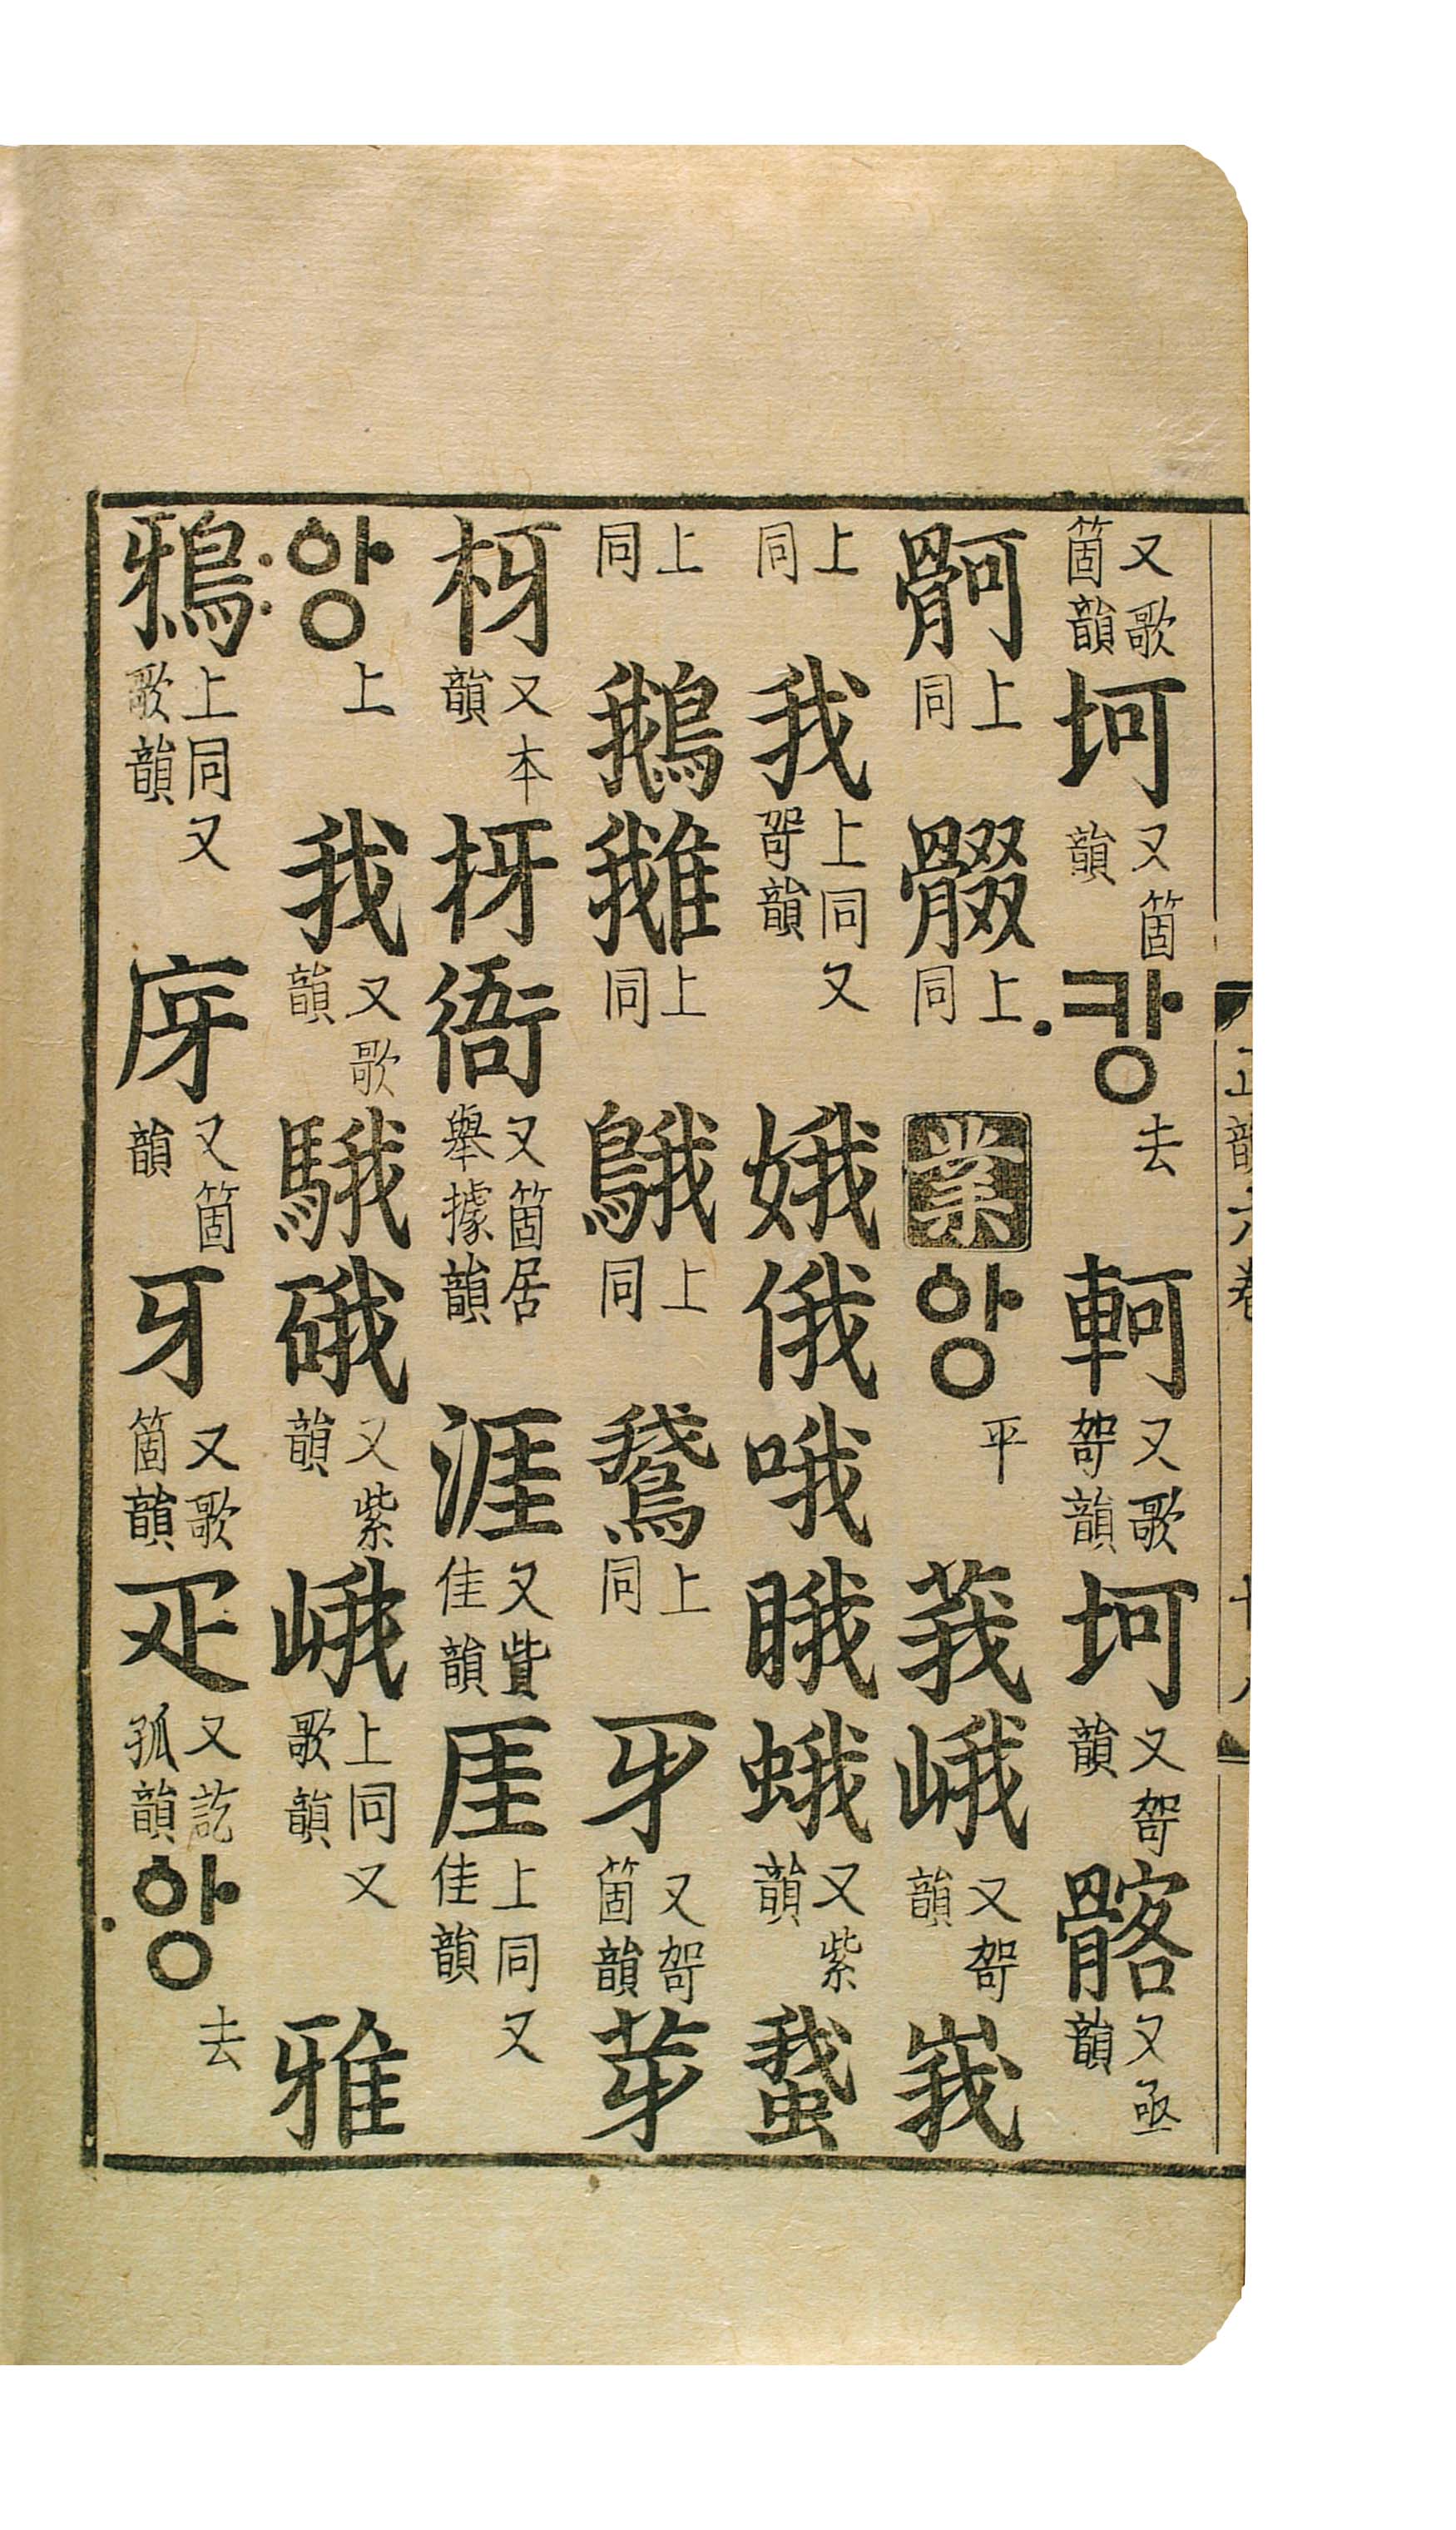 又歌箇韻坷又箇韻〮캉去軻又歌哿韻坷又哿韻髂又亟韻
䯊上同上同業앙平莪峨又哿韻峩
上同我上同又哿韻娥俄哦睋蛾又紫韻䖸
上同鵝上同䳘上同鵞上同牙又哿箇韻芽
枒又本韻衙又箇居擧據韻涯又貲佳韻厓上同又佳韻
〯앙上我又歌韻騀硪又紫韻峨上同又歌韻雅
鴉上同又歌韻庌又箇韻牙又歌箇韻疋又訖孤韻〮앙去